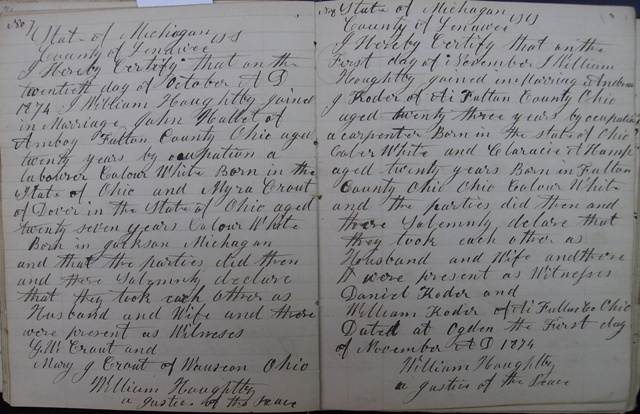 No 7
State of Michigan } SS
County of Lenawee
I Hereby Certify that on the
twentieth day of October A D
1874 I William Houghtby joined
in Marriage John Hallet of
Amboy Fulton County Ohio aged
twenty years by ocupation a
labourer Colour White Born in the
State of Ohio and Myra Crout
of Dover in the State of Ohio aged
twenty seven years Colour White
Born in Jackson Michigan
and that the parties did then
and there Solemnly declare
that they took each other as
Husband and Wife and there
were present as Witneses
G.W. Crout and
Mary J Crout of Wauseon Ohio
William Houghtby
a Justice of the Peace
State of Michigan } SS
County of Lenawee
I Hereby Certify that on the
First day of November I William
Houghtby joined in Marriage
J Koder of Ai Fulton County Ohio
aged twenty three years by ocupation
a carpenter Born in the state of Ohio
Color White and
aged twenty years Born in Fulton
County Ohio Ohio Colour White
and the parties did then and
there Solemnly declare that
they took each other as
Husband and Wife and there
were present as Witnesses
Daniel Koder and
William Koder of Ai Fulton Co Ohio
Dated at Ogden the First day
of November A D 1874
William Houghtby
a Justice of the Peace